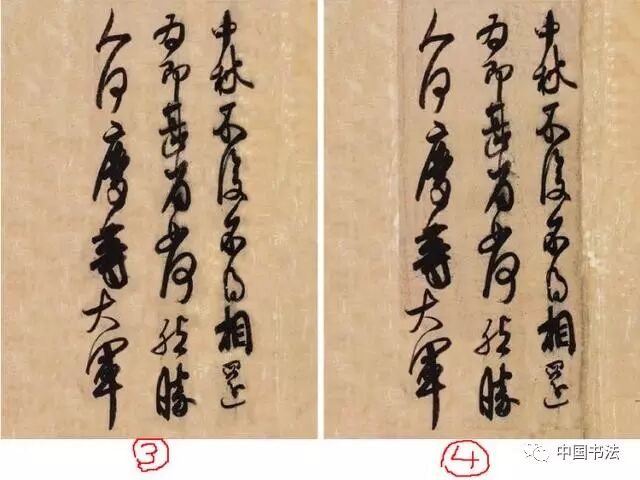 中秋不復不得相還
為即甚省如何然勝
人何慶等大軍
③
中秋不復不得相還
為即甚省如何然勝
人何慶等大軍
④
中国书法